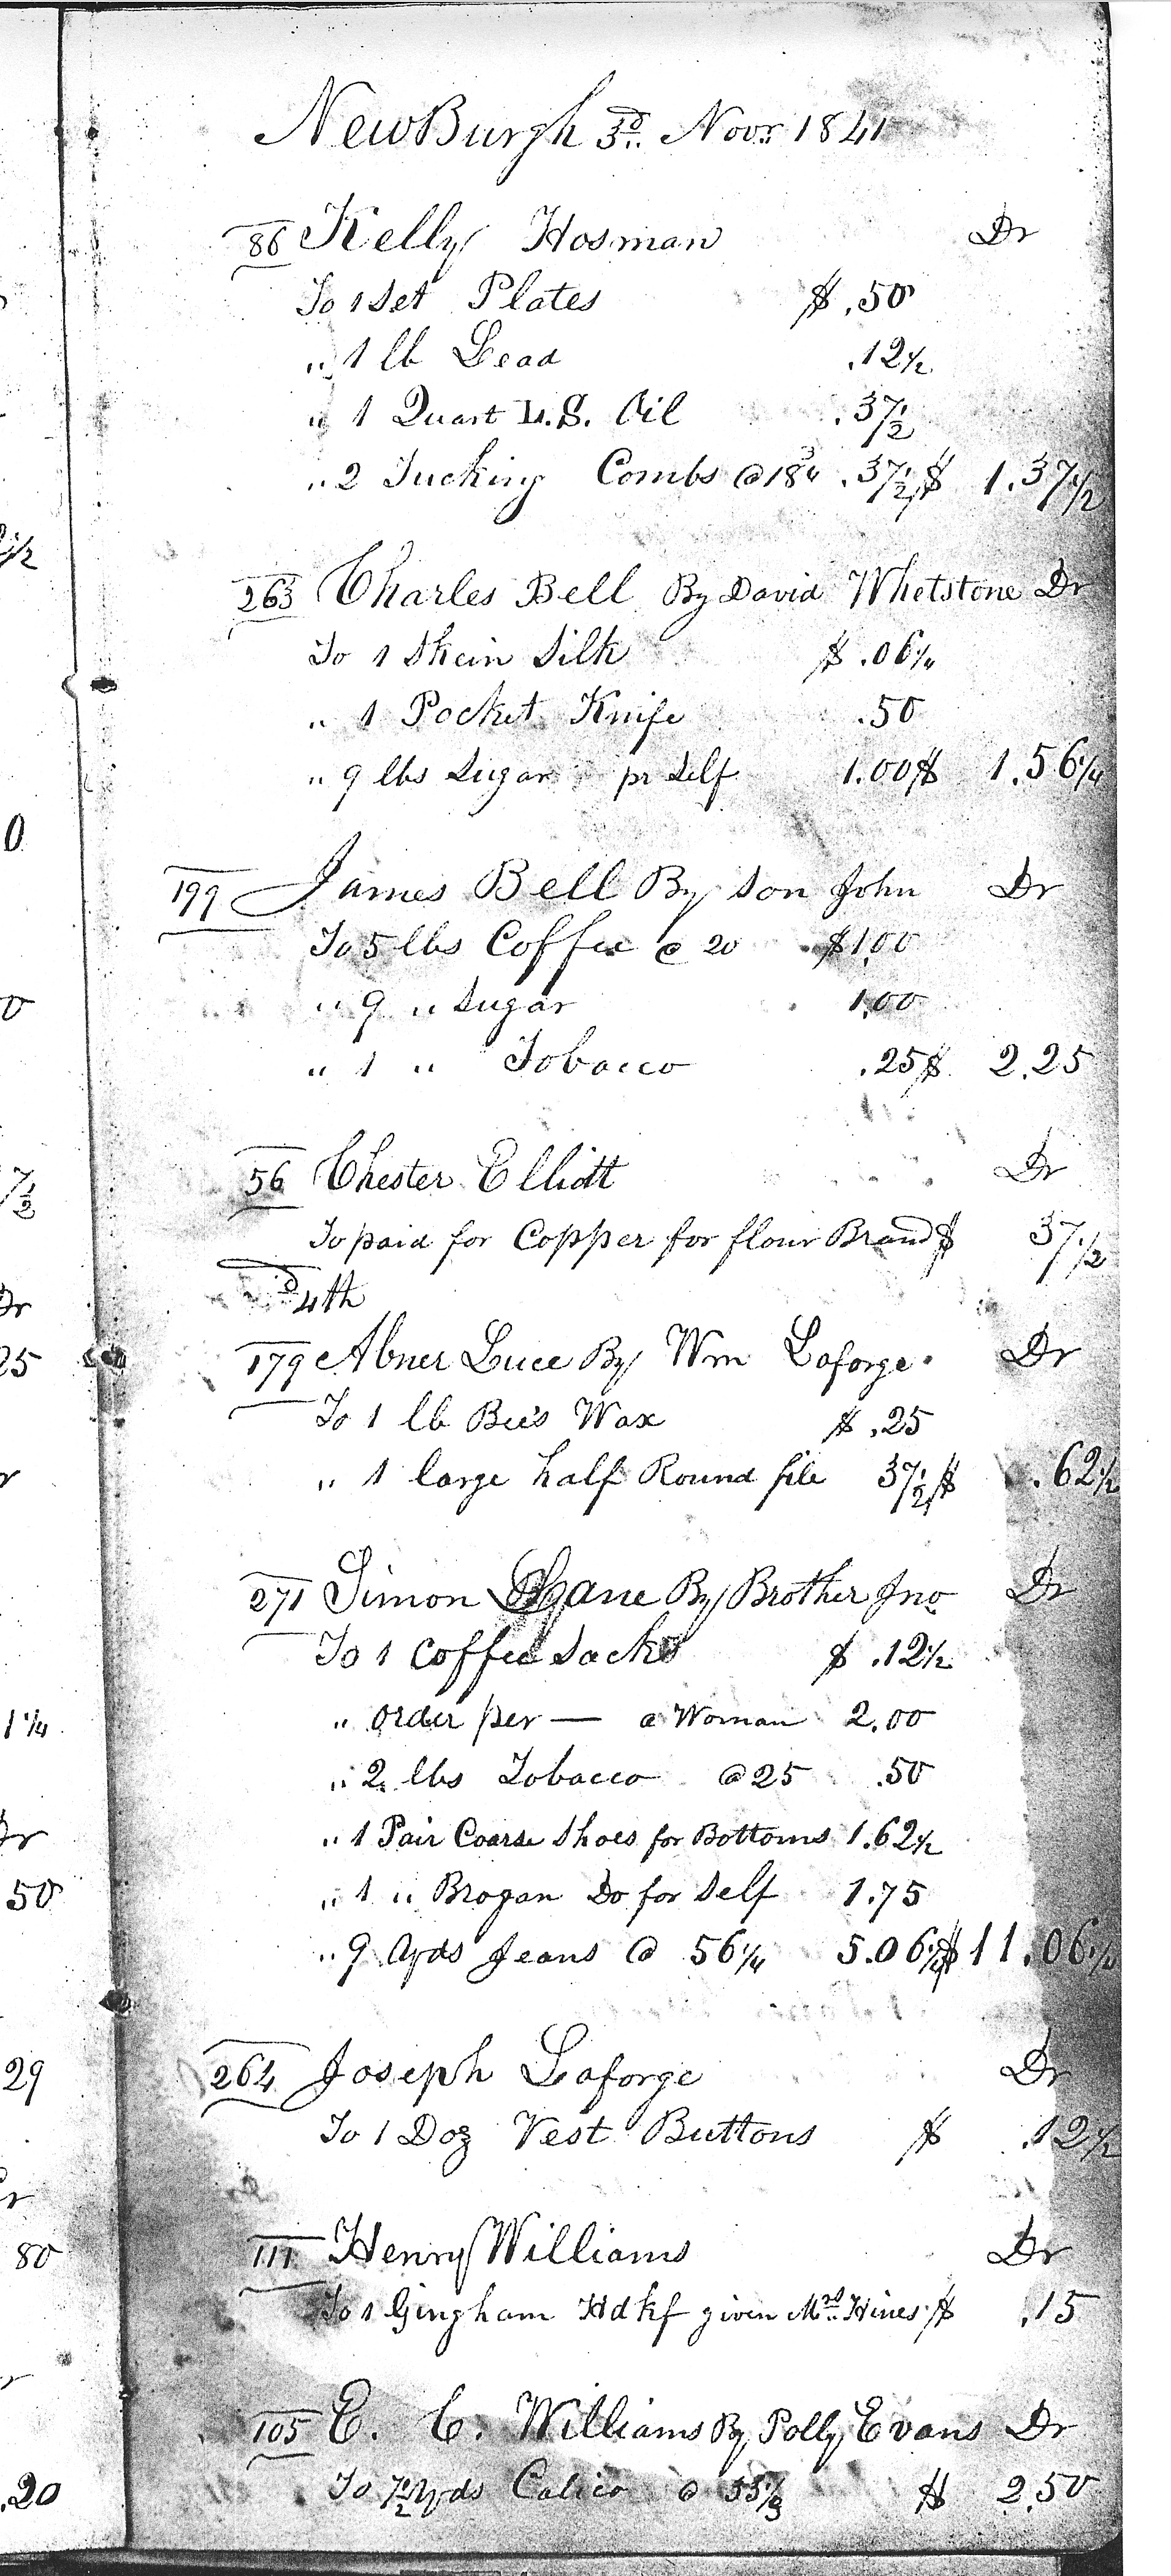 NewBurgh 3d Novr 1841
86 Kelly Hosman Dr
To 1 Set Plates $ .50
" 1 lb Lead .12½
" 1 Quart L.S. Oil .37½
" 2 Tucking Combs @ 18¾ .37½ $ 1.37½
263 Charles Bell By David Whetstone Dr
To 1 Skein Silk $ .06¼
" 1 Pocket Knife .50
" 9 lbs Sugar pr Self 1.00 $ 1.56¼
199 James Bell By Son John Dr
To 5 lbs Coffee @ 20 $1.00
" 9 " Sugar 1.00
" 1 " Tobacco .25 $ 2.25
56 Chester Elliott Dr
To paid for Copper for flour Brand $ 37½
4th
179 Abner Luce By Wm Laforge Dr
To 1 lb Bees Wax $ .25
" 1 large half Round file 37½ $ .62½
271 Simon By Brother Jno Dr
To 1 Coffee Sack $ .12½
" order per — a Woman 2.00
" 2 lbs Tobacco @ 25 .50
" 1 Pair Coarse Shoes for Bottoms 1.62½
" 1 " Brogan Do for Self 1.75
" 9 Yds Jeans @ 56¼ 5.06¼ $ 11.06¼
264 Joseph Laforge Dr
To 1 Doz Vest Buttons $ .12½
111 Henry Williams Dr
To 1 Gingham Hdkf given Mrs Hines $ .15
105 E. C. Williams By Polly Evans Dr
To 7½ Yds Calico @ 33⅓ $ 2.50